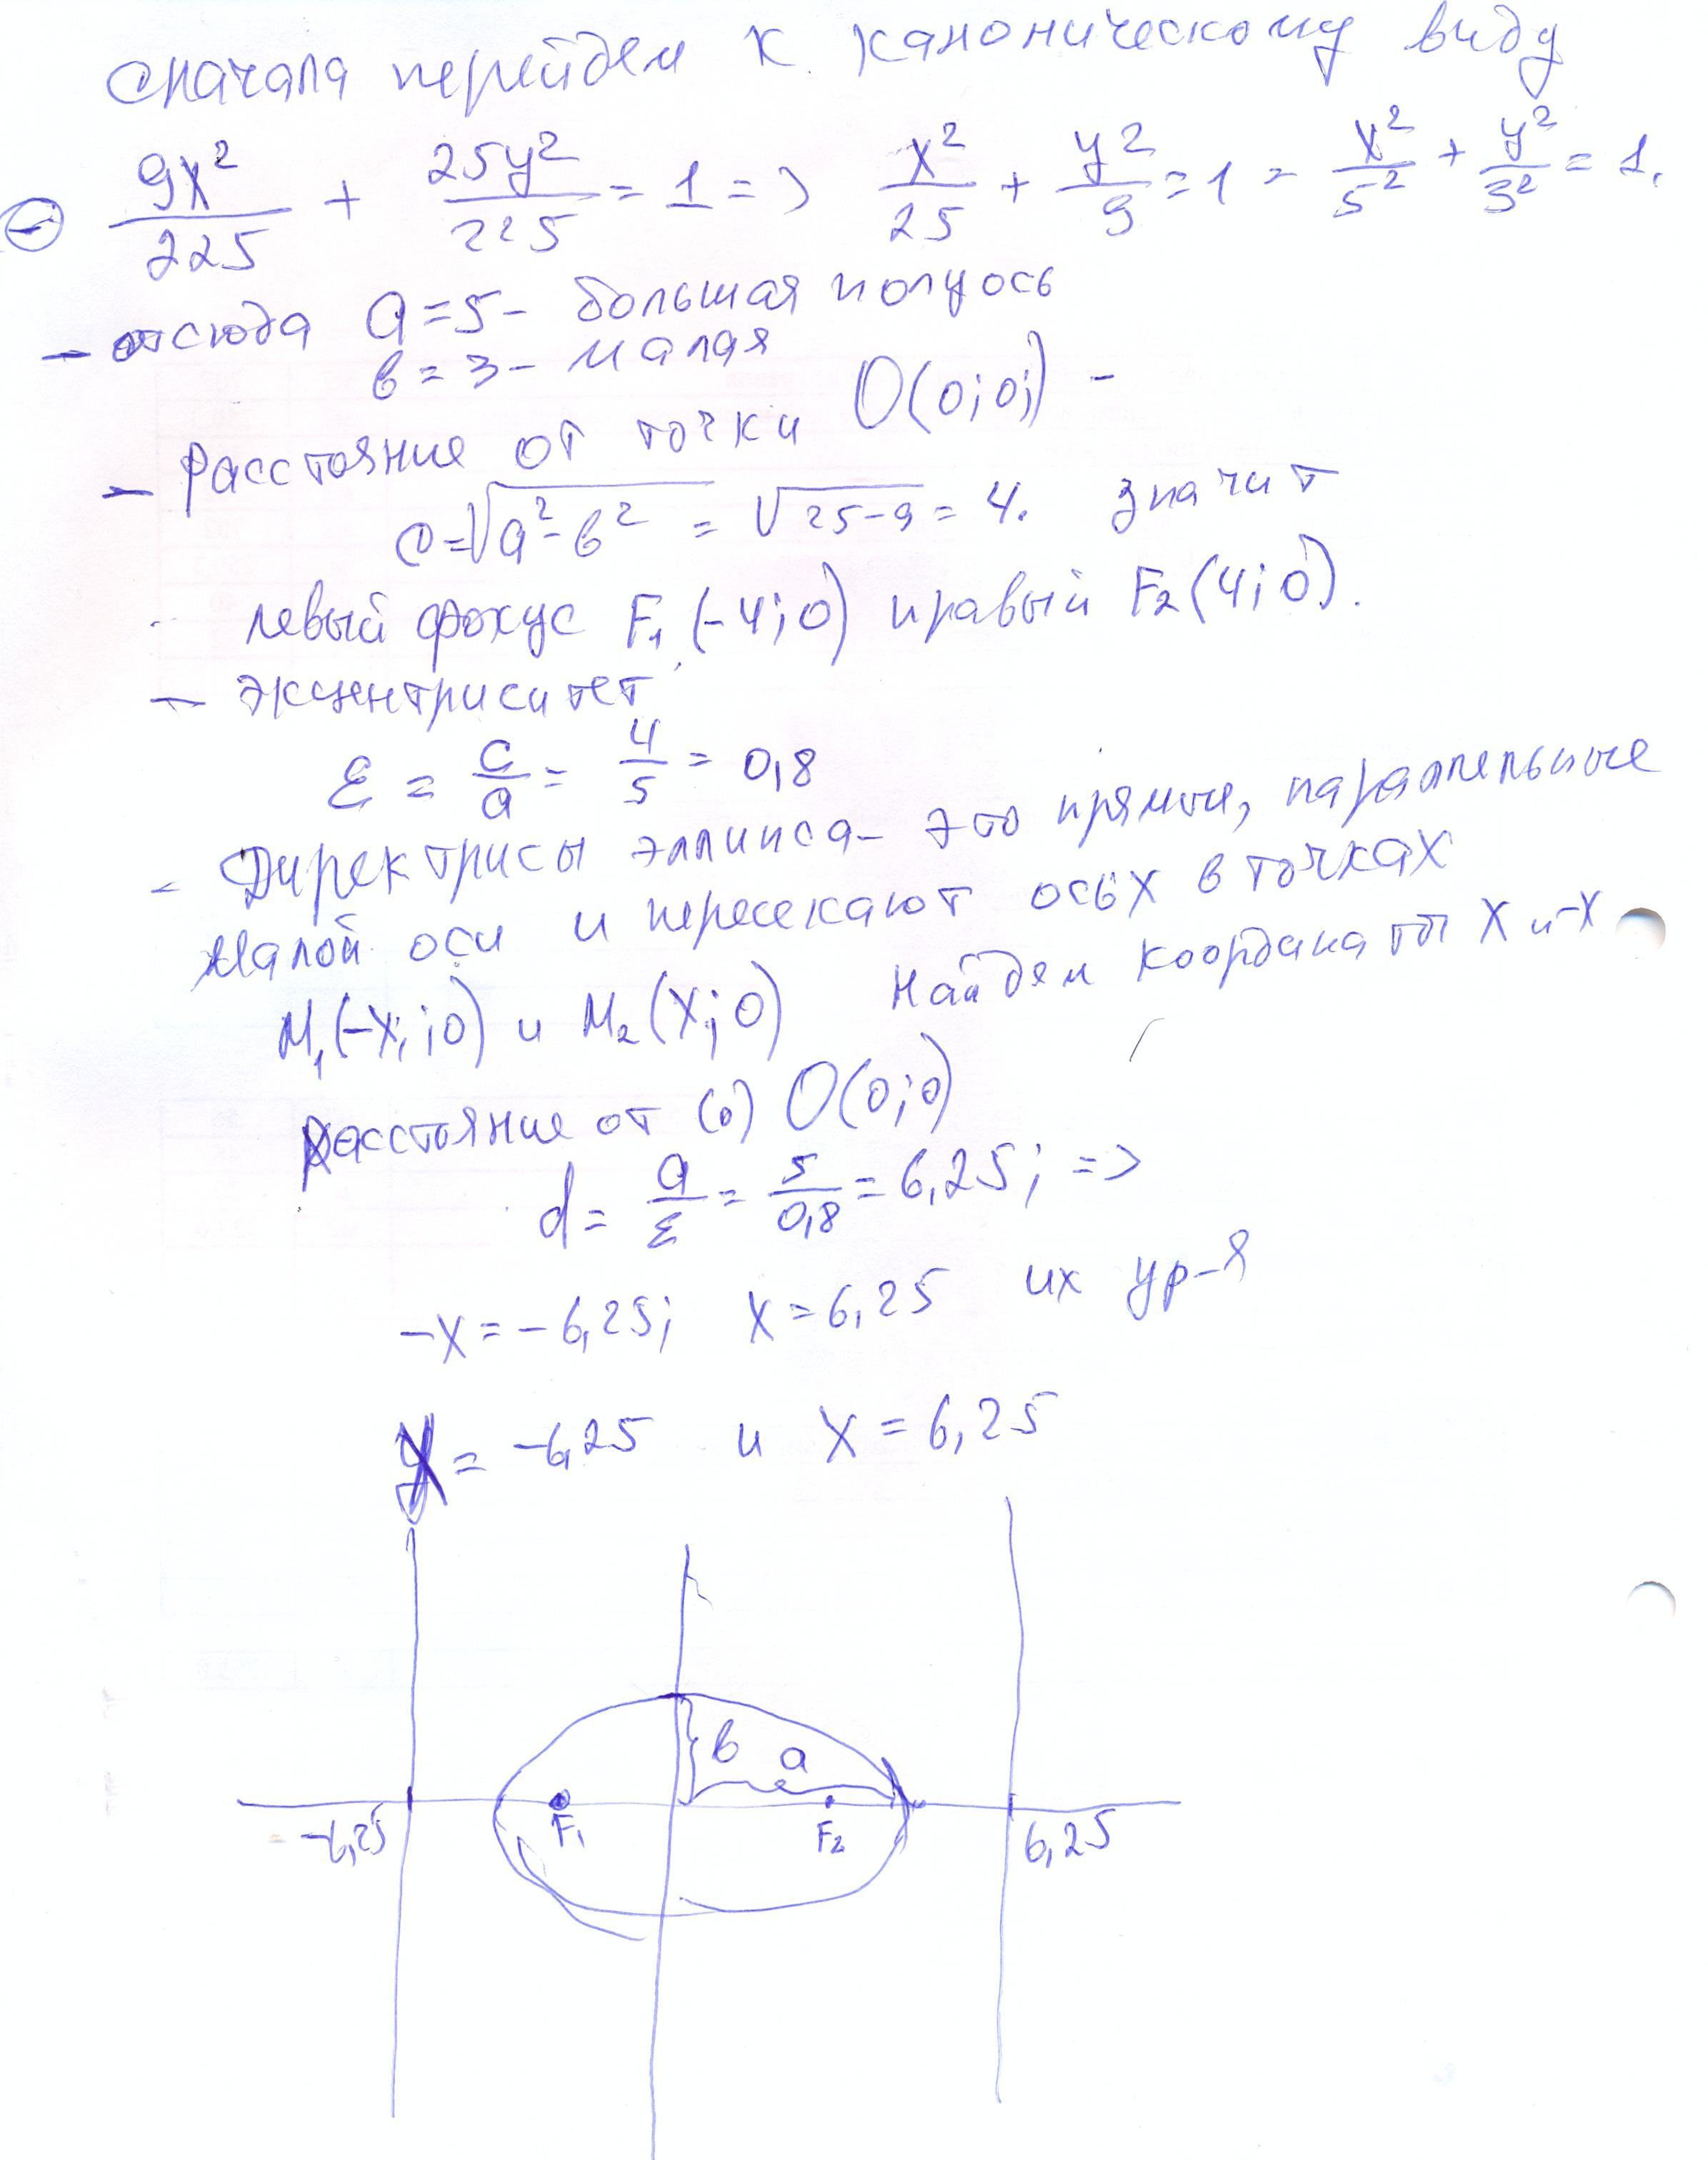 сначала перейдем к каноническому виду
9x²/225 + 25y²/225 = 1 => x²/25 + y²/9 = 1 = x²/5² + y²/3² = 1.
- отсюда a = 5 - большая полуось
в = 3 - малая
- Расстояние от точки O(0;0;) -
c = √(a² - в²) = √(25-9) = 4. значит
левый фокус F₁(-4;0) правый F₂(4;0).
- эксцентриситет
ε = c/a = 4/5 = 0,8
- Директрисы эллипса - это прямые, параллельные
малой оси и пересекают ось x в точках
M₁(-x;;0) и M₂(x;0) Найдем координаты x и -x
Расстояние от (·) O(0;0)
d = a/ε = 5/0,8 = 6,25; =>
-x = -6,25; x = 6,25 их ур-я
x = -6,25 и x = 6,25
в a
F₁ F₂
-6,25 6,25